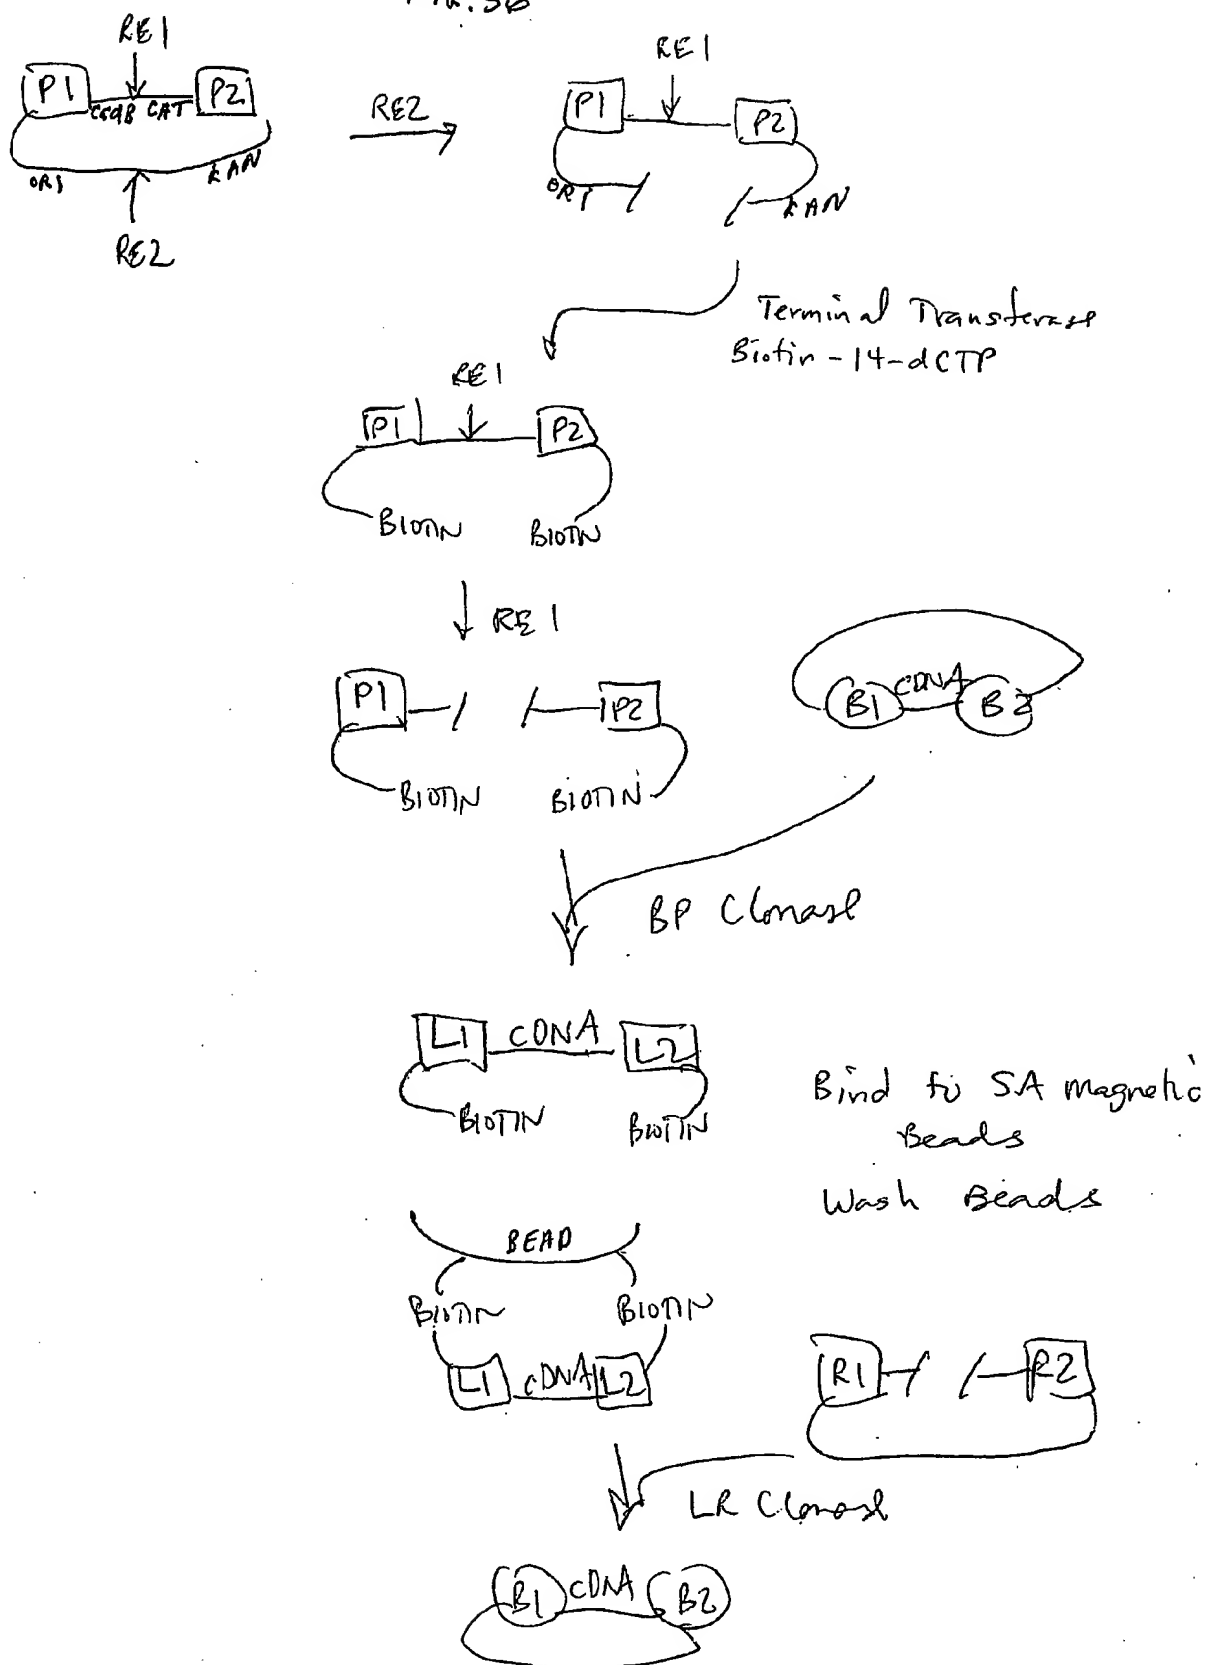 RE1
P1
CCdB CAT
P2
ORI
KAN
RE2
RE2
RE1
P1
P2
ORI
KAN
Terminal Transferase
Biotin-14-dCTP
RE1
P1
P2
BIOTIN BIOTIN
RE1
P1
P2
BIOTIN BIOTIN
B1 CDNA B2
BP Clonase
L1 CDNA L2
BIOTIN BIOTIN
Bind to SA magnetic
Beads
Wash Beads
BEAD
BIOTIN BIOTIN
L1 cDNA L2
R1 R2
LR Clonase
B1 cDNA B2